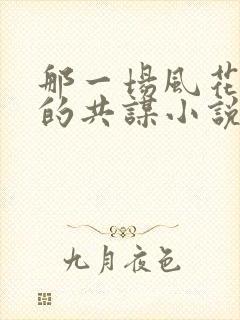 那一場風花
的共謀小說
九月夜色